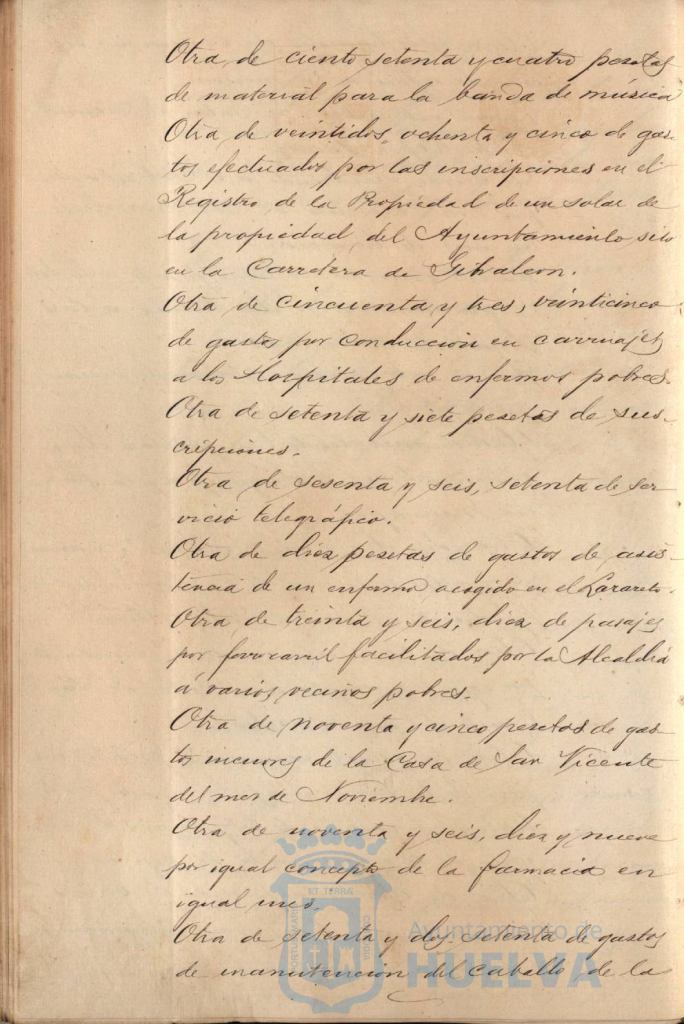 Otra de ciento setenta y cuatro pesetas
de material para la banda de música
Otra de veintidos, ochenta y cinco de gas-
tos efectuados por las inscripciones en el
Registro de la Propiedad de un solar de
la propiedad del Ayuntamiento sito
en la Carretera de Gibraleon.
Otra de cincuenta y tres, veinticinco
de gastos por conduccion en carruajes
a los Hospitales de enfermos pobres.
Otra de setenta y siete pesetas de sus-
cripciones.
Otra de sesenta y seis, setenta de ser
vicio telegráfico.
Otra de diez pesetas de gastos de asis-
tencia de un enfermo acogido en el Lazareto.
Otra de treinta y seis, diez de pasajes
por ferrocarril facilitados por la Alcaldia
á varios vecinos pobres.
Otra de noventa y cinco pesetas de gas-
tos menores de la Casa de San Vicente
del mes de Noviembre.
Otra de noventa y seis, diez y nueve
por igual concepto de la farmacia en
igual mes.
Otra de setenta y dos, setenta de gastos
de manutencion del caballo de la
ET TERRA
Ayuntamiento de
HUELVA